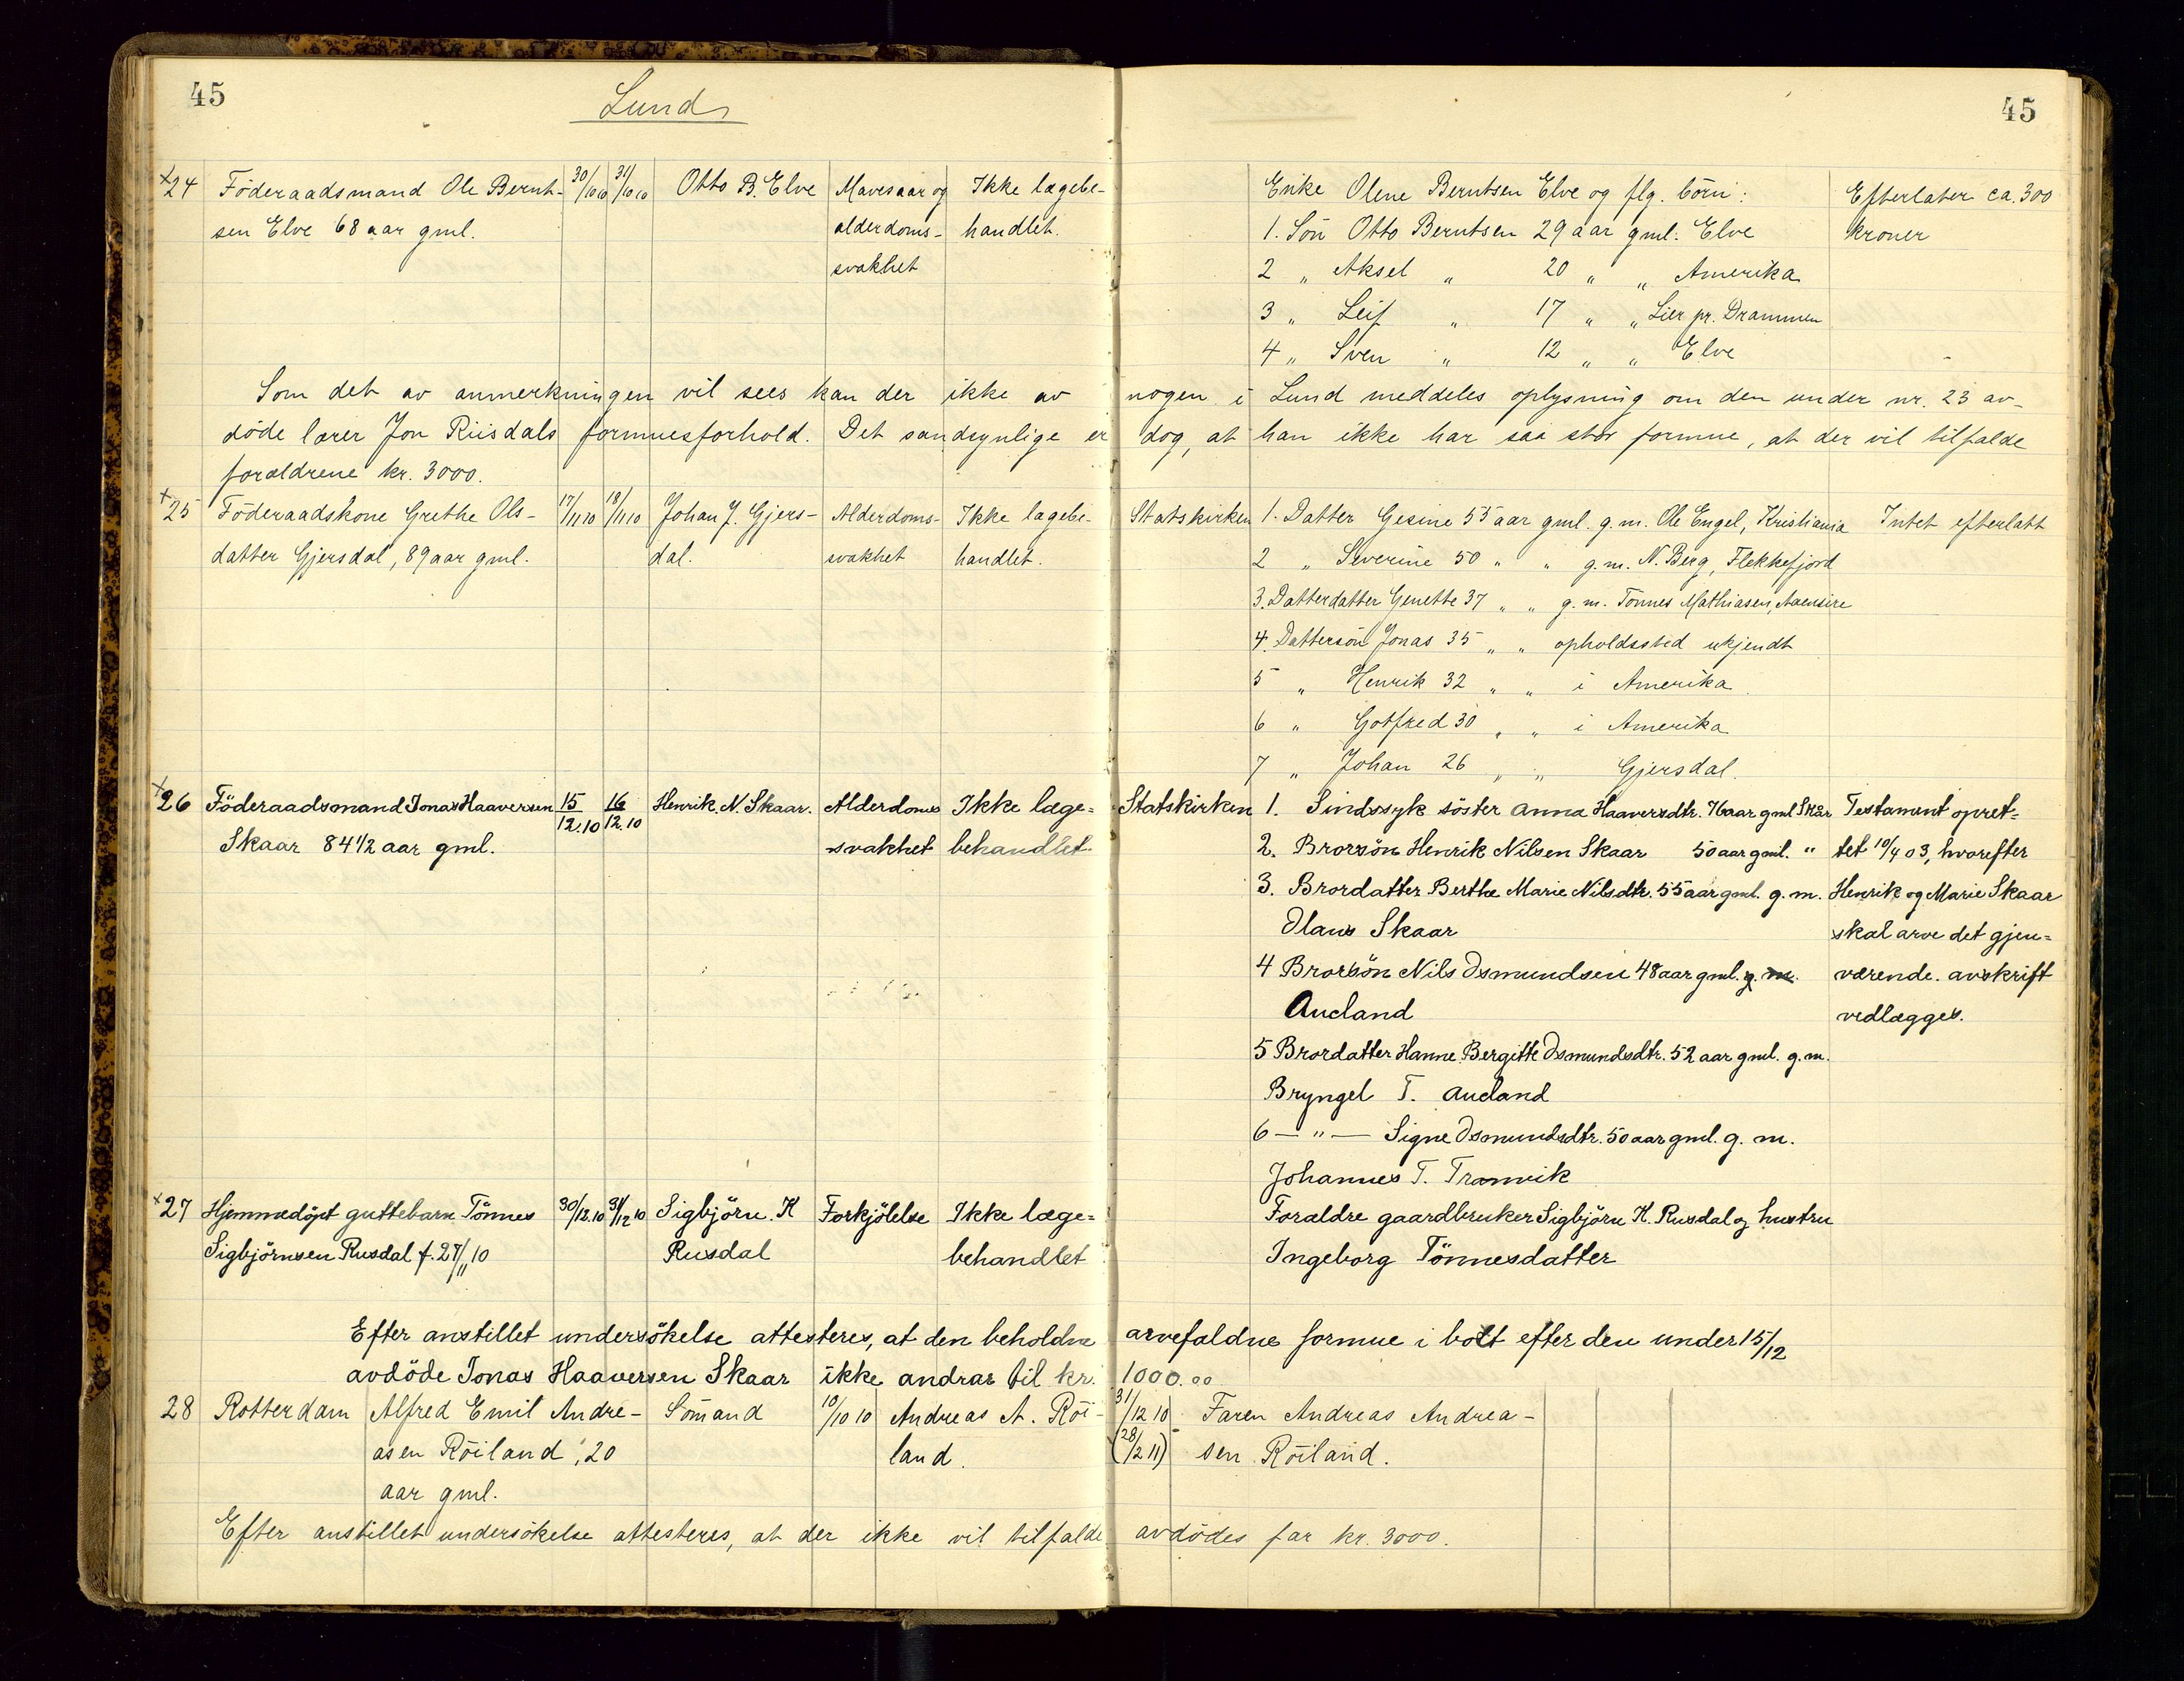 45
Lund
45
×24 Föderaadsmand Ole Bernt- 30/10 10 31/10 10 Otto B. Elve Mavesaar og Ikke lægebe- Enke Olene Berntsen Elve og flg. börn: Efterlater ca. 300
sen Elve 68 aar gml. alderdoms- handlet. 1. Sön Otto Berntsen 29 aar gml. Elve kroner
svakhet 2 „ Aksel „ 20 „ „ Amerika
3 „ Leif „ 17 „ „ Lier pr. Drammen
4 „ Sven „ 12 „ „ Elve
Som det av anmerkningen vil sees kan der ikke av nogen i Lund meddeles oplysning om den under nr. 23 av-
döde lærer Jon Riisdals formuesforhold. Det sandsynlige er dog, at han ikke har saa stor formue, at der vil tilfalde
forældrene kr. 3000.
×25 Föderaadskone Grethe Ols- 17/11 10 18/11 10 Johan J. Gjers- Alderdoms- Ikke lægebe- Statskirken 1. Datter Gesine 55 aar gml. g. m. Ole Engel, Kristiania Intet efterlatt
datter Gjersdal, 89 aar gml. dal. svakhet handlet. 2 „ Severine 50 „ „ g. m. N. Berg, Flekkefjord
3. Datterdatter Genette 37 „ „ g. m. Tönnes Mathiasen, Aaensire
4. Dattersön Jonas 35 „ „ opholdssted ukjendt
5 „ Henrik 32 „ „ i Amerika
6 „ Gotfred 30 „ „ i Amerika
7 „ Johan 26 „ „ Gjersdal.
×26 Föderaadsmand Jonas Haaversen 15/12.10 16/12.10 Henrik. N. Skaar. Alderdoms Ikke læge= Statskirken 1. Sindssyk söster Anna Haaversdtr. 76 aar gml Skår Testament opret=
Skaar 84 1/2 aar gml. svakhet behandlet 2. Brorsön Henrik Nilsen Skaar 50 aar gml. „ tet 10/4 03, hvorefter
3. Brordatter Berthe Marie Nilsdtr. 55 aar gml. g. m. Henrik og Marie Skaar
Olaus Skaar skal arve det gjen=
4 Brorsön Nils Osmundsen 48 aar gml. g. m. værende. avskrift
Aueland vedlægges.
5 Brordatter Hanne Bergitte Osmundsdtr. 52 aar gml. g. m.
Bryngel T. Aueland
6 — „ — Signe Osmundsdtr. 50 aar gml. g. m.
Johannes T. Tranvik
×27 Hjemmedöpt guttebarn Tönnes 30/12.10 31/12 10 Sigbjörn. K Forkjölelse Ikke læge= Foraldre gaardbruker Sigbjörn K. Rusdal og hustru
Sigbjörnsen Rusdal f. 27/11 10 Rusdal behandlet Ingeborg Tönnesdatter
Efter anstillet undersökelse attesteres, at den beholdne arvefaldne formue i boet efter den under 15/12
avdöde Jonas Haaversen Skaar ikke andrar til kr. 1000.00
28 Rotterdam Alfred Emil Andre- Sömand 10/10 10 Andreas A. Röi- 31/12 10 Faren Andreas Andrea-
asen Röiland, 20 land. (28/2 11) sen Röiland.
aar gml.
Efter anstillet undersökelse attesteres, at der ikke vil tilfalde avdödes far kr. 3000.